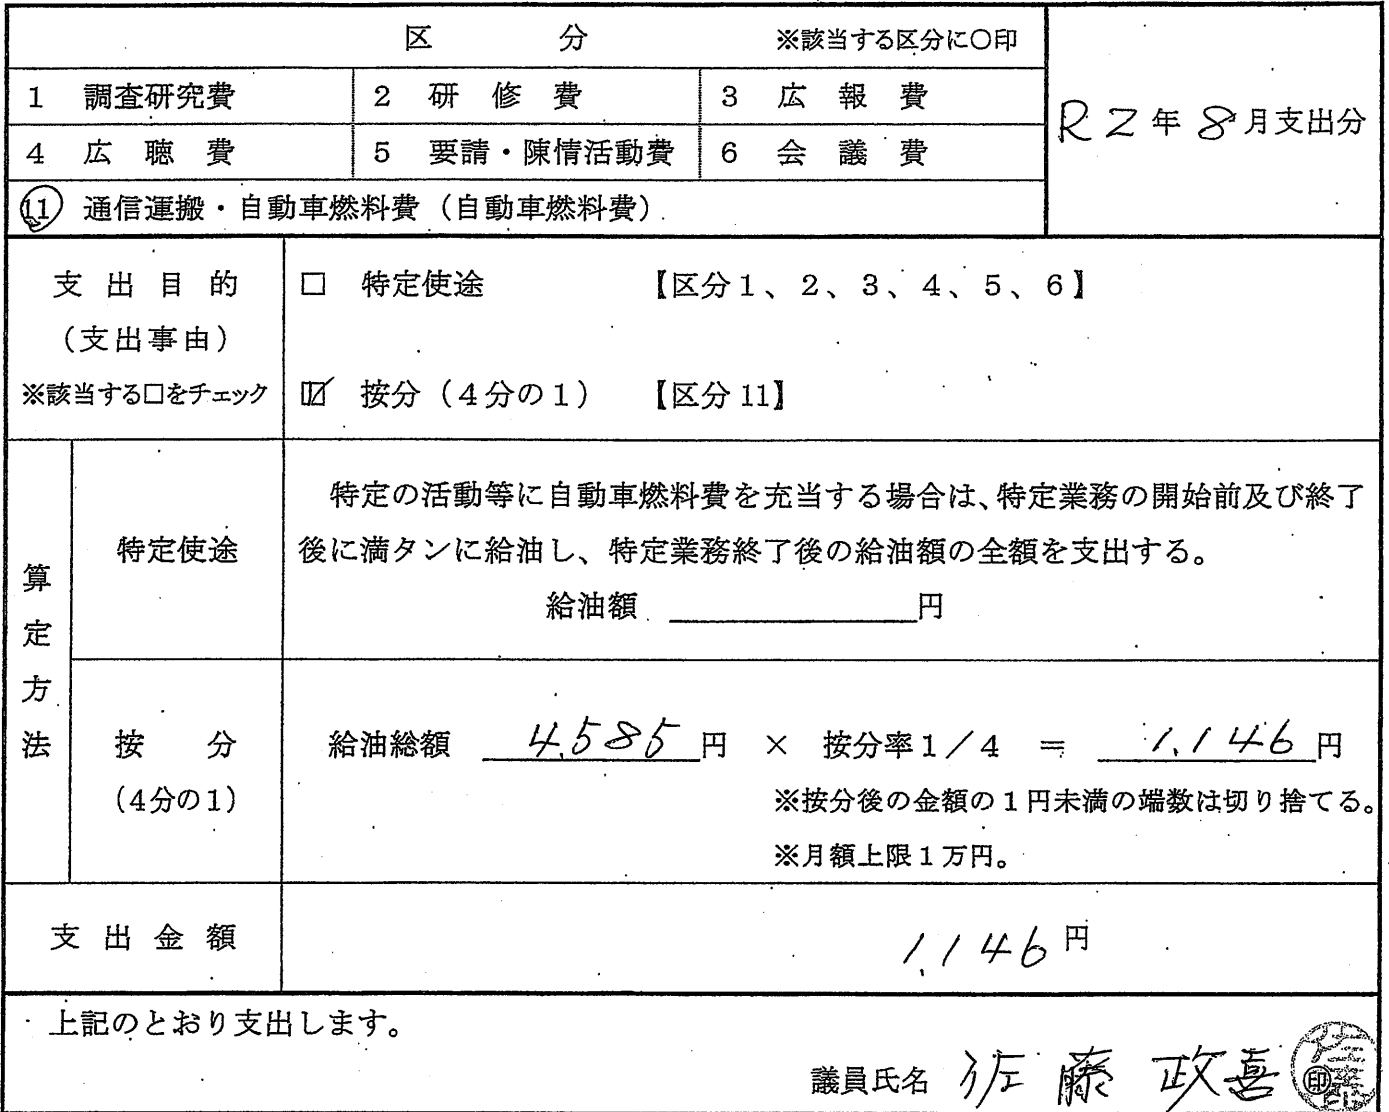 区 分 ※該当する区分に○印
1 調査研究費 2 研修費 3 広報費
R2年8月支出分
4 広聴費 5 要請・陳情活動費 6 会議費
11 通信運搬・自動車燃料費（自動車燃料費）
支出目的
（支出事由）
※該当する□をチェック
□ 特定使途 【区分1、2、3、4、5、6】
☑ 按分（4分の1） 【区分11】
算定方法
特定使途
特定の活動等に自動車燃料費を充当する場合は、特定業務の開始前及び終了
後に満タンに給油し、特定業務終了後の給油額の全額を支出する。
給油額 円
按分
（4分の1）
給油総額 4,585円 × 按分率1／4 ＝ 1,146円
※按分後の金額の1円未満の端数は切り捨てる。
※月額上限1万円。
支出金額 1,146円
上記のとおり支出します。
議員氏名 佐藤 政喜 印
佐藤